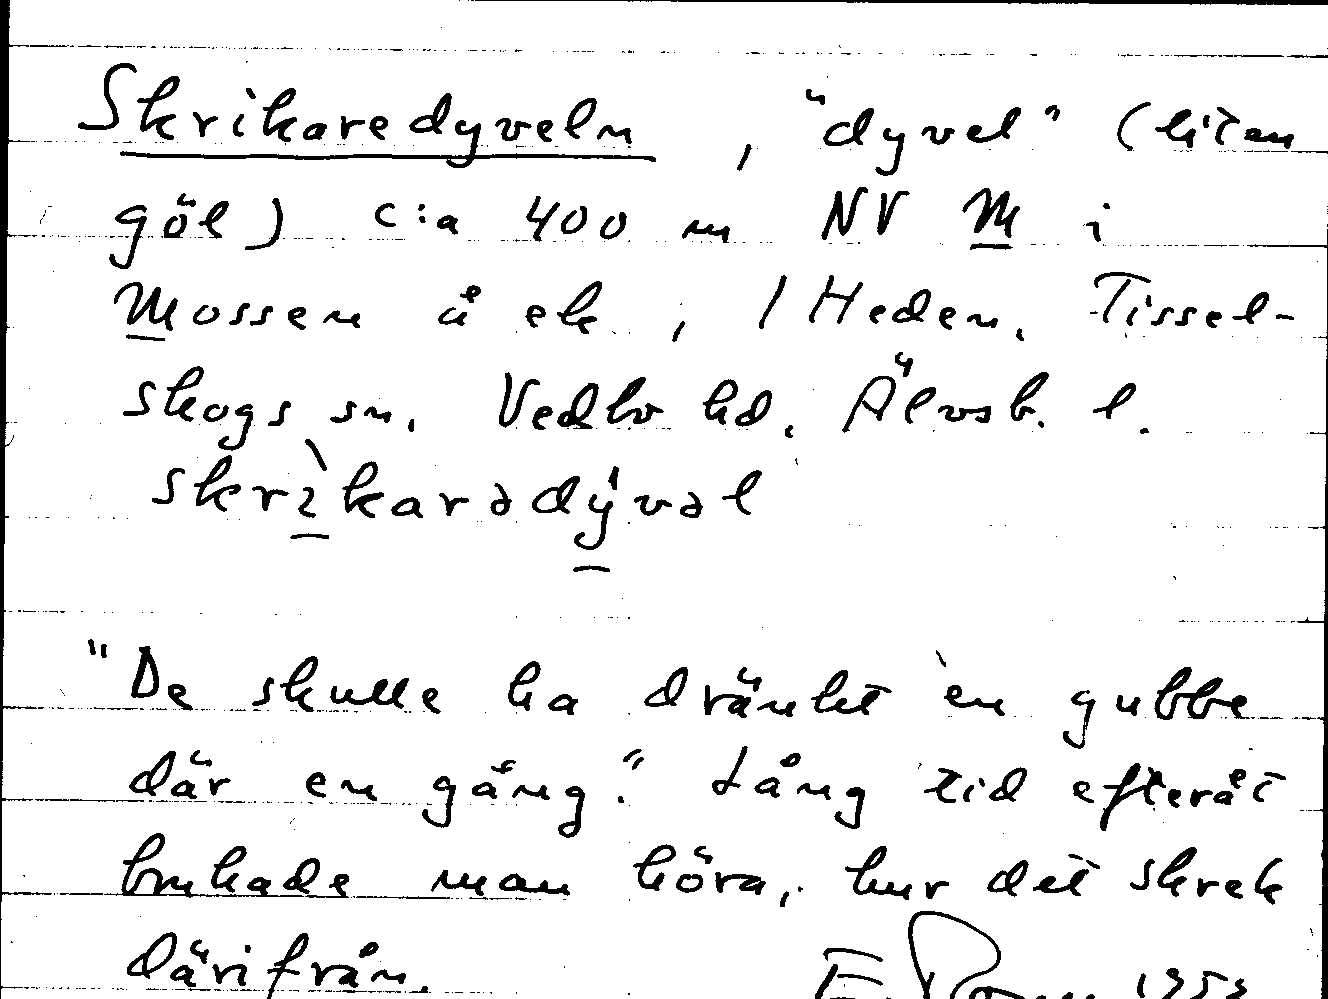 Skrikaredyveln, "dyvel" (liten
göl) c:a 400 m NV M i
Mossen å ek, / Heden. Tissel-
skogs sn. Vedbo hd. Älvsb. l.
skrìkarədy̍vəl
"De skulle ha dränkt en gubbe
där en gång." Lång tid efteråt
brukade man höra, hur det skrek
därifrån.